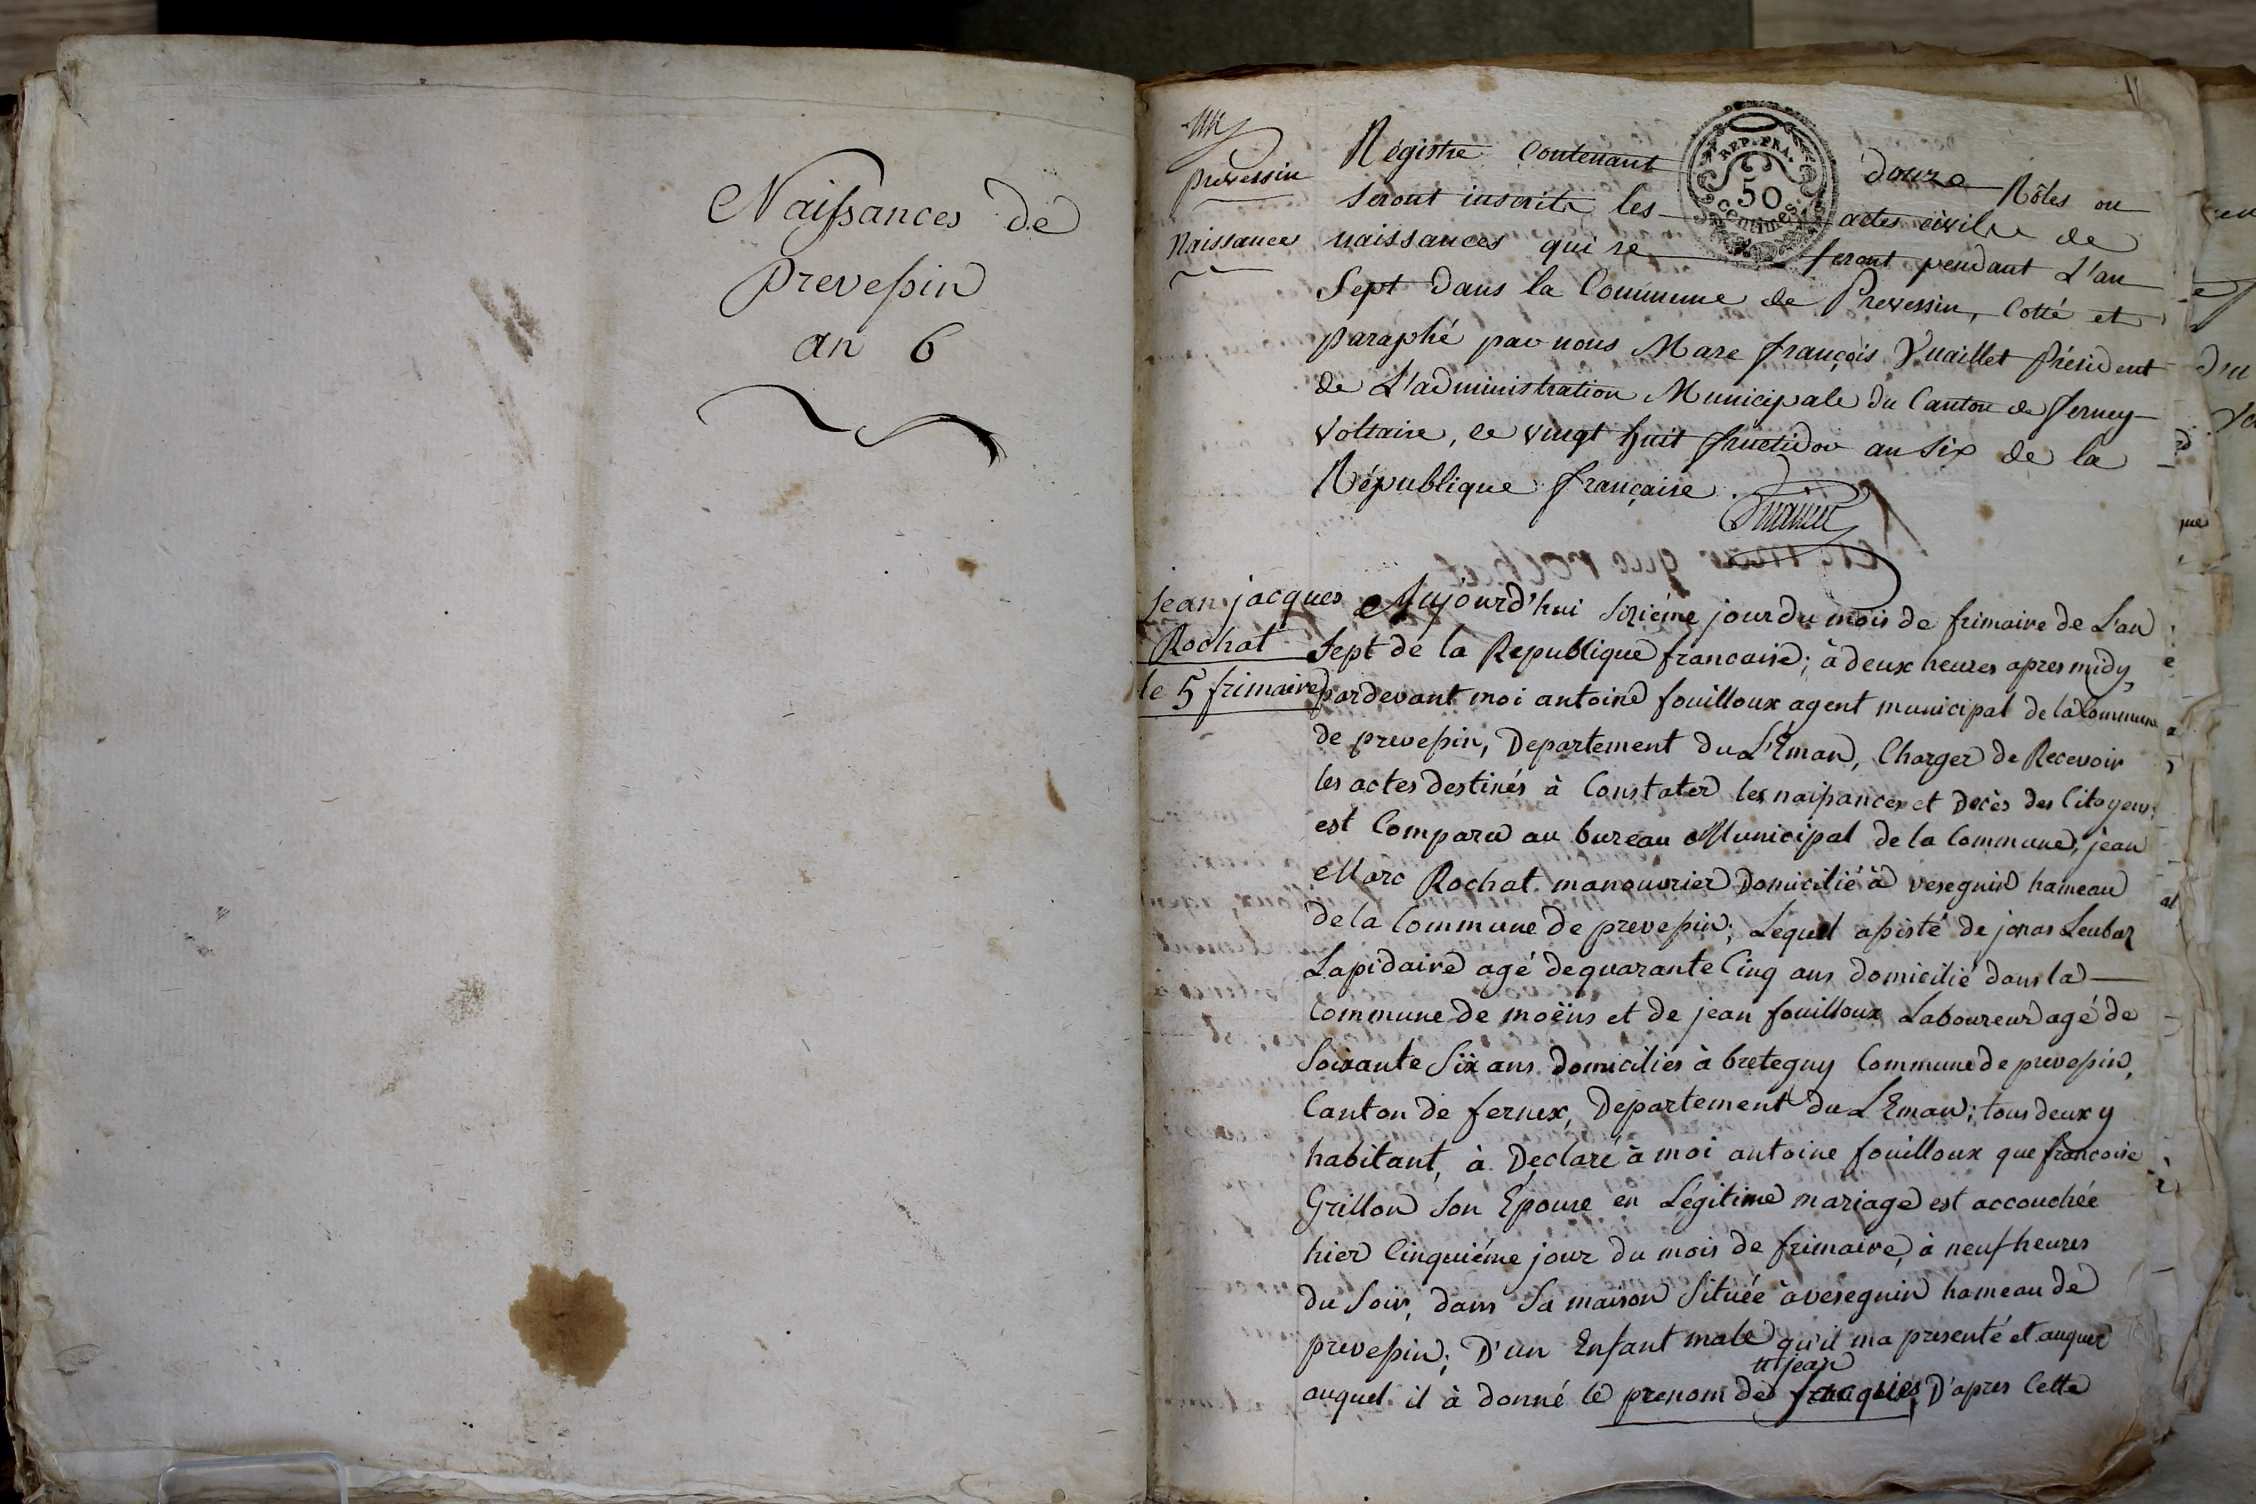 Naissances de
prevessin
an 6
prevessin
Naissances
Régistre contenant douze Rôles ou
seront inscrits les actes civils de
naissances qui se feront pendant L'an
Sept dans la Commune de Prevessin, Cotté et
paraphé par nous Marc françois Vuaillet Président
de L'administration Municipale du Canton de ferney
Voltaire, le vingt huit fructidor an Six de la
République française.
REP. FRA.
50
centimes
jean jacques
Rochat
le 5 frimaire
Aujourd'hui Sixiéme jour du mois de frimaire de L'an
Sept de la Republique francaise; à deux heures apres midy,
pardevant moi antoine fouilloux agent municipal de la Commune
de prevessin, Departement du L'Eman, Charger de Recevoir
les actes destinés à Constater les naissances et Decès des Citoyens
est Comparu au bureau Municipal de la Commune, jean
Marc Rochat manouvrier Domicilié à veseguin hameau
de la Commune de prevessin; Lequel assisté de jonas
Lapidaire agé de quarante Cinq ans domicilié dans la
Commune de moëns et de jean fouilloux Laboureur agé de
Soixante Six ans domiciliés à bretegny Commune de prevessin,
Canton de fernex, Departement du L'Eman; tous deux y
habitant, à Declaré à moi antoine fouilloux que francoise
Grillon Son Epouse en Légitime mariage est accouchée
hier Cinquiéme jour du mois de frimaire, à neuf heures
du Soir, dans Sa maison Située à veseguin hameau de
prevessin; D'un Enfant male qu'il ma presenté et auquel
jean
auquel il à donné le prenom de jacques, D'apres Cette